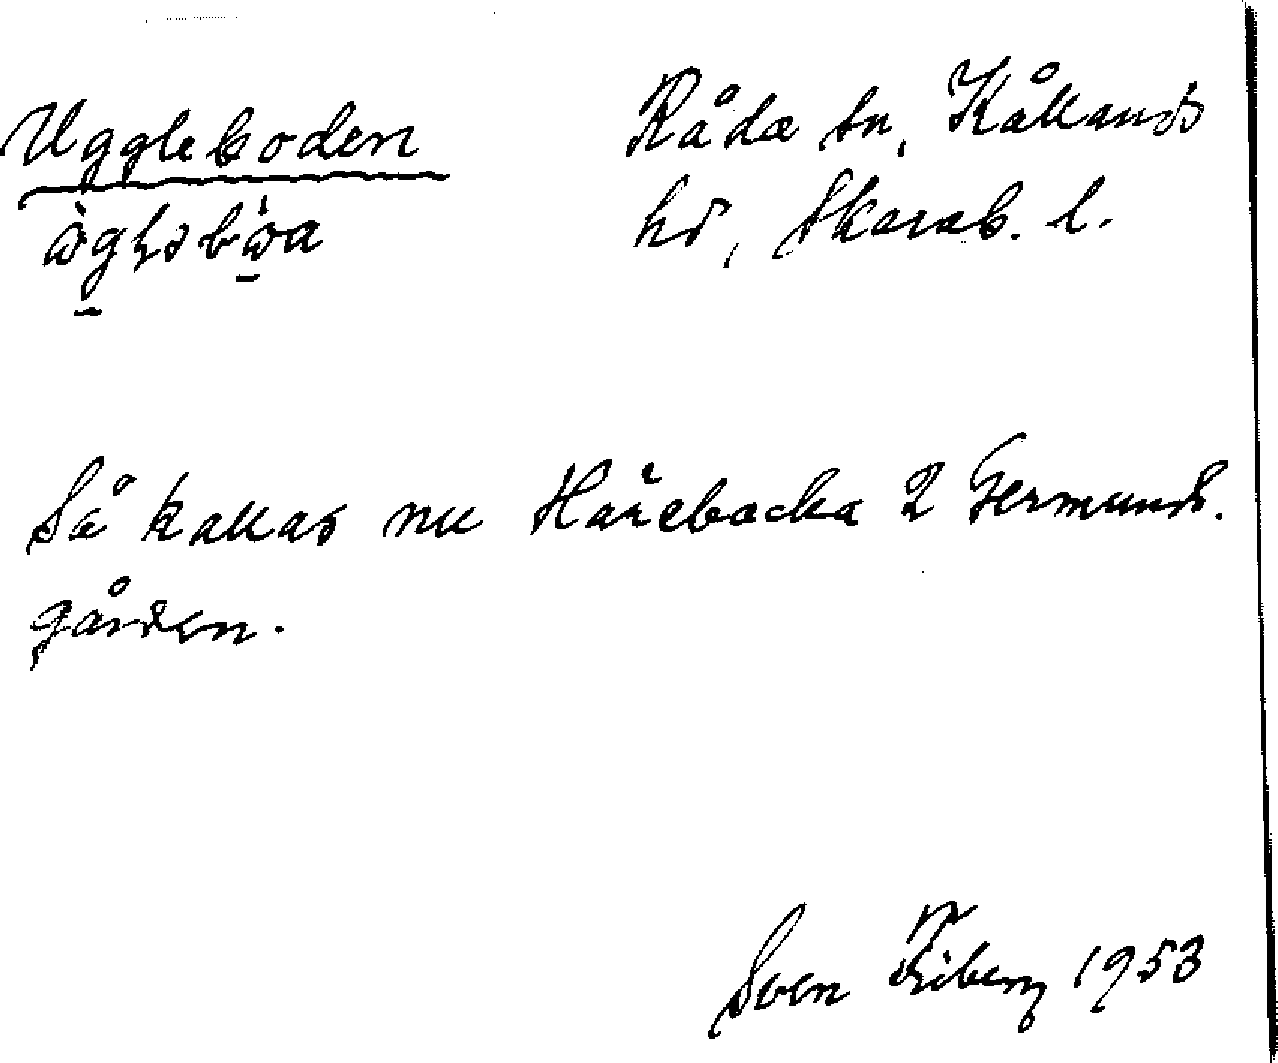 Uggleboden
Råda sn, Kållands
hd, Skarab. l.
Så kallas nu Härebacka 2 Germunds.
gården.
Sven Friberg 1953